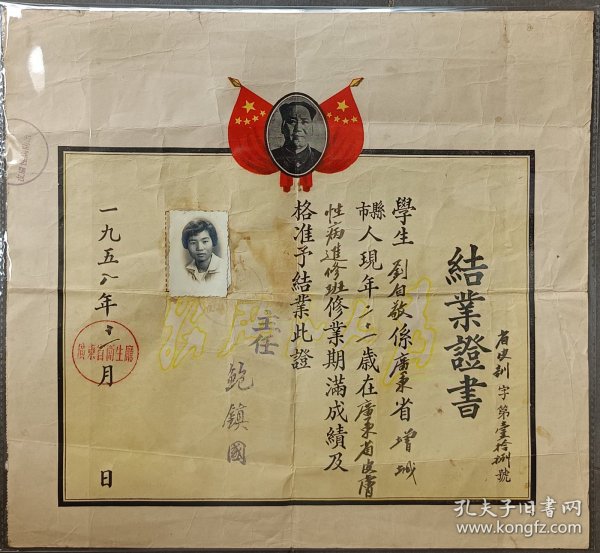 結業證書
省皮訓字第壹拾捌號
學生劉自敬係廣東省增城
縣市人現年二十一歲在廣東省皮膚
性病進修班修業期滿成績及
格准予結業此證
主任
範鎮國
一九五八年十二月 日
廣東省衛生廳
孔夫子旧书网
www.kongfz.com